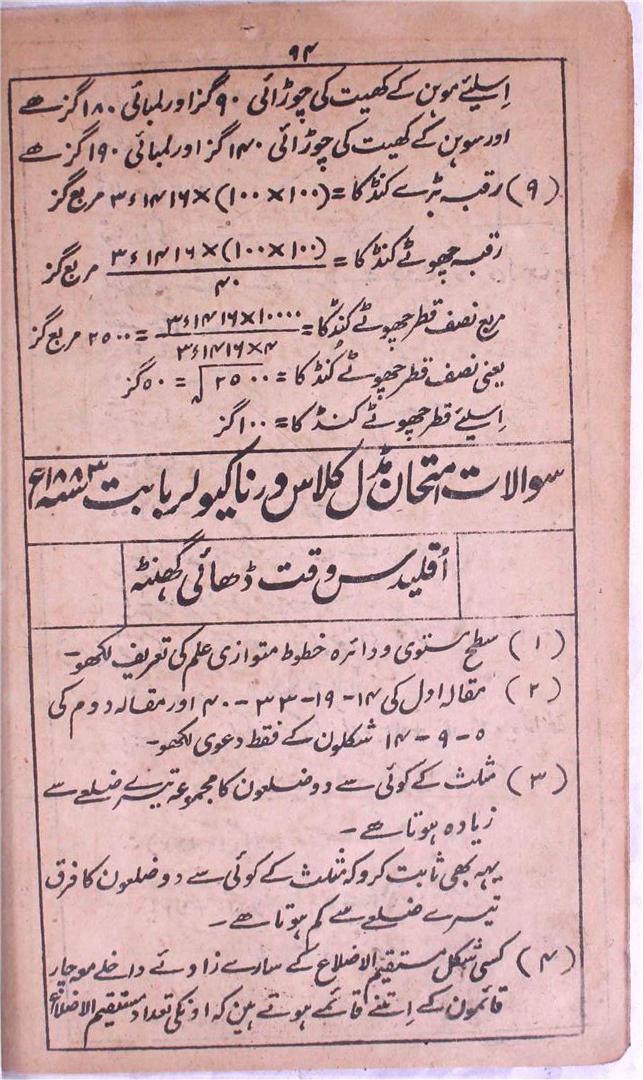 ۹۴
اِسلیے موہن کے کھیت کی چوڑائی ۹۰ گز اور لمبائی ۱۸۰ گز ہے
اور سوہن کے کھیت کی چوڑائی ۱۴۰ گز اور لمبائی ۱۹۰ گز ہے
(۹) رقبہ بڑے کنڈ کا = (۱۰۰ × ۱۰۰) × ۳ء۱۴۱۶ مربع گز
رقبہ چھوٹے کنڈ کا = (۱۰۰×۱۰۰) × ۳ء۱۴۱۶ / ۴۰ مربع گز
مربع نصف قطر چھوٹے کنڈ کا = ۳ء۱۴۱۶×۱۰۰۰۰ / ۳ء۱۴۱۶×۴ = ۲۵۰۰ مربع گز
یعنی نصف قطر چھوٹے کُنڈ کا = √۲۵۰۰ = ۵۰ گز
اِسلیے قطر چھوٹے کنڈ کا = ۱۰۰ گز
سوالات امتحان مڈل کلاس ورناکیولر بابت سنہ ۱۸۸۳ء
اُقلیدس وقت ڈھائی گھنٹہ
(۱) سطح مستوی و دائرہ خطوط متوازی علم کی تعریف لکھو۔
(۲) مقالہ اول کی ۱۴-۱۹-۳۳-۴۰ اور مقالہ دوم کی
۵-۹-۱۴ شکلون کے فقط دعوی لکھو۔
(۳) مثلث کے کوئی سے دو ضلعون کا مجموعہ تیسرے ضلعے سے
زیادہ ہوتا ہے۔
یہہ بھی ثابت کرو کہ مثلث کے کوئی سے دو ضلعون کا فرق
تیسرے ضلعے سے کم ہوتا ہے۔
(۴) کسی شکل مستقیم الاضلاع کے سارے زاوئے داخلے مع چار
قائمون کے اِتنے قائمے ہوتے ہین کہ اونکی تعداد مستقیم الاضلاع